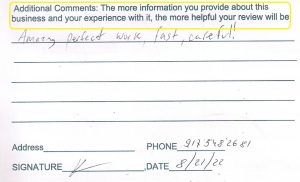 Additional Comments: The more information you provide about this
business and your experience with it, the more helpful your review will be
Amazing perfect work, fast, careful!
Address PHONE 917 548 2681
SIGNATURE DATE 8/21/22